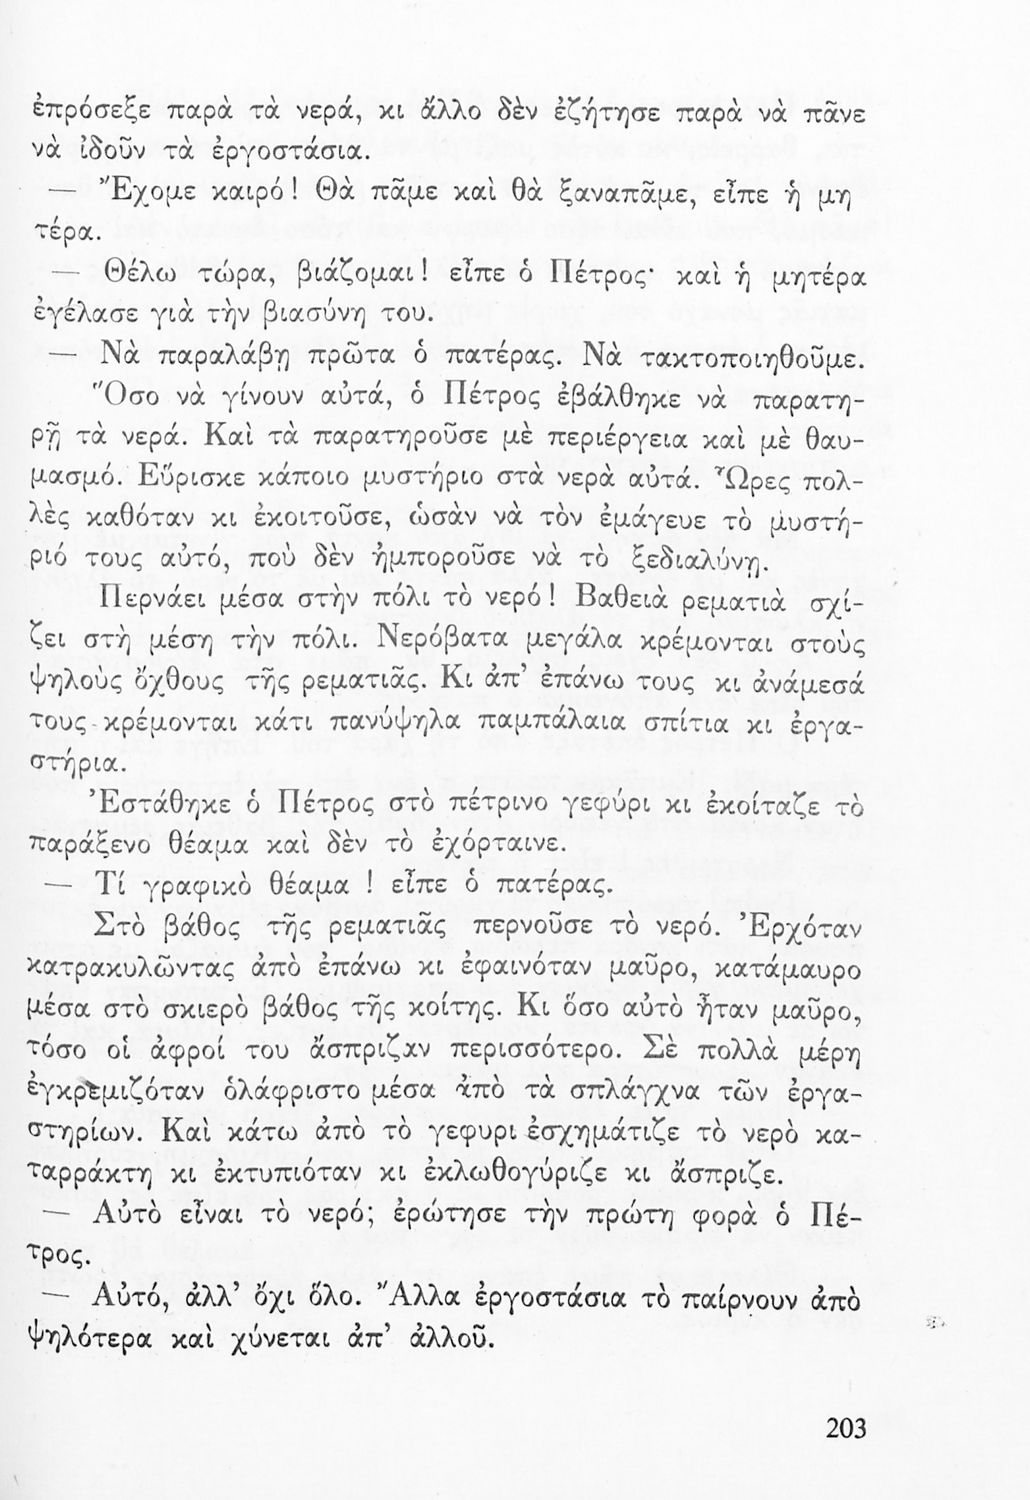 ἐπρόσεξε παρὰ τὰ νερά, κι ἄλλο δὲν ἐζήτησε παρὰ νὰ πᾶνε
νὰ ἰδοῦν τὰ ἐργοστάσια.
— Ἔχομε καιρό! Θὰ πᾶμε καὶ θὰ ξαναπᾶμε, εἶπε ἡ μη
τέρα.
— Θέλω τώρα, βιάζομαι! εἶπε ὁ Πέτρος· καὶ ἡ μητέρα
ἐγέλασε γιὰ τὴν βιασύνη του.
— Νὰ παραλάβῃ πρῶτα ὁ πατέρας. Νὰ τακτοποιηθοῦμε.
Ὅσο νὰ γίνουν αὐτά, ὁ Πέτρος ἐβάλθηκε νὰ παρατη-
ρῇ τὰ νερά. Καὶ τὰ παρατηροῦσε μὲ περιέργεια καὶ μὲ θαυ-
μασμό. Εὕρισκε κάποιο μυστήριο στὰ νερὰ αὐτά. Ὦρες πολ-
λὲς καθόταν κι ἐκοιτοῦσε, ὡσὰν νὰ τὸν ἐμάγευε τὸ μυστή-
ριό τους αὐτό, ποὺ δὲν ἠμποροῦσε νὰ τὸ ξεδιαλύνῃ.
Περνάει μέσα στὴν πόλι τὸ νερό! Βαθειὰ ρεματιὰ σχί-
ζει στὴ μέση τὴν πόλι. Νερόβατα μεγάλα κρέμονται στοὺς
ψηλοὺς ὄχθους τῆς ρεματιᾶς. Κι ἀπ’ ἐπάνω τους κι ἀνάμεσά
τους κρέμονται κάτι πανύψηλα παμπάλαια σπίτια κι ἐργα-
στήρια.
Ἐστάθηκε ὁ Πέτρος στὸ πέτρινο γεφύρι κι ἐκοίταζε τὸ
παράξενο θέαμα καὶ δὲν τὸ ἐχόρταινε.
— Τί γραφικὸ θέαμα ! εἶπε ὁ πατέρας.
Στὸ βάθος τῆς ρεματιᾶς περνοῦσε τὸ νερό. Ἐρχόταν
κατρακυλῶντας ἀπὸ ἐπάνω κι ἐφαινόταν μαῦρο, κατάμαυρο
μέσα στὸ σκιερὸ βάθος τῆς κοίτης. Κι ὅσο αὐτὸ ἦταν μαῦρο,
τόσο οἱ ἀφροί του ἄσπριζαν περισσότερο. Σὲ πολλὰ μέρη
ἐγκρεμιζόταν ὁλάφριστο μέσα ἀπὸ τὰ σπλάγχνα τῶν ἐργα-
στηρίων. Καὶ κάτω ἀπὸ τὸ γεφυρι ἐσχημάτιζε τὸ νερὸ κα-
ταρράκτη κι ἐκτυπιόταν κι ἐκλωθογύριζε κι ἄσπριζε.
— Αὐτὸ εἶναι τὸ νερό; ἐρώτησε τὴν πρώτη φορὰ ὁ Πέ-
τρος.
— Αὐτό, ἀλλ’ ὄχι ὅλο. Ἄλλα ἐργοστάσια τὸ παίρνουν ἀπὸ
ψηλότερα καὶ χύνεται ἀπ’ ἀλλοῦ.
203